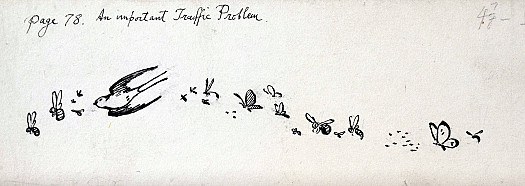 page 78. An important Traffic Problem.
47-